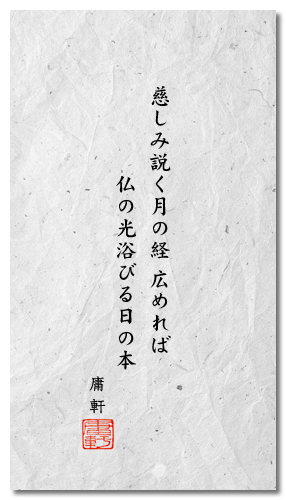 慈しみ説く月の経 広めれば
仏の光浴びる日の本
庸軒